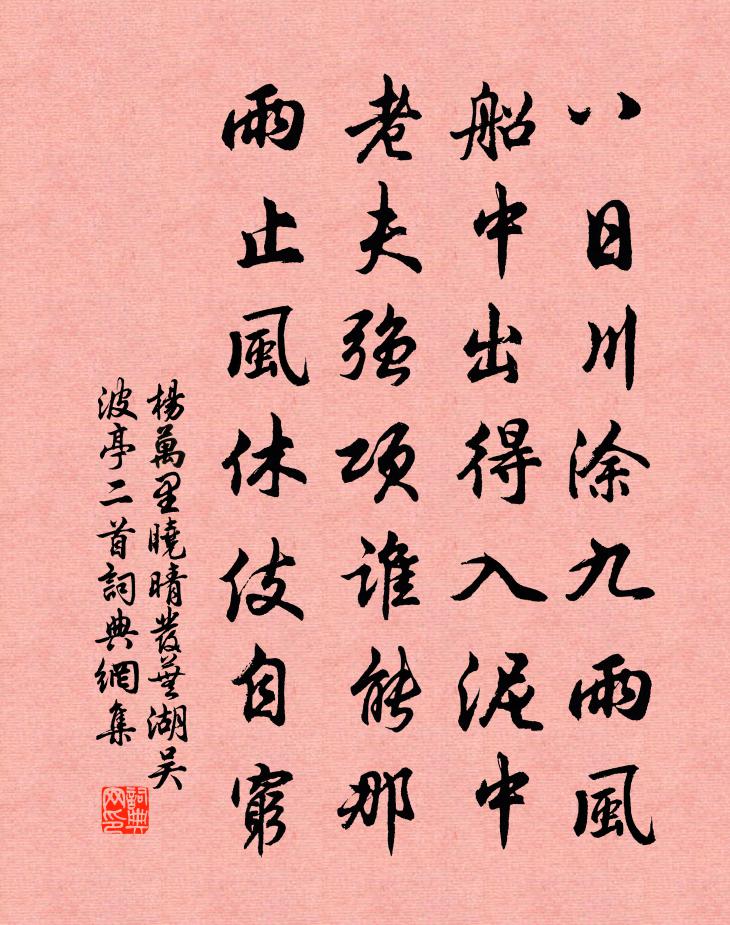 八日川涂九雨風
船中出得入泥中
老夫強項誰能那
雨止風休伎自窮
楊萬里曉晴發蕪湖吳
波亭二首詞典網集
詞典
网印